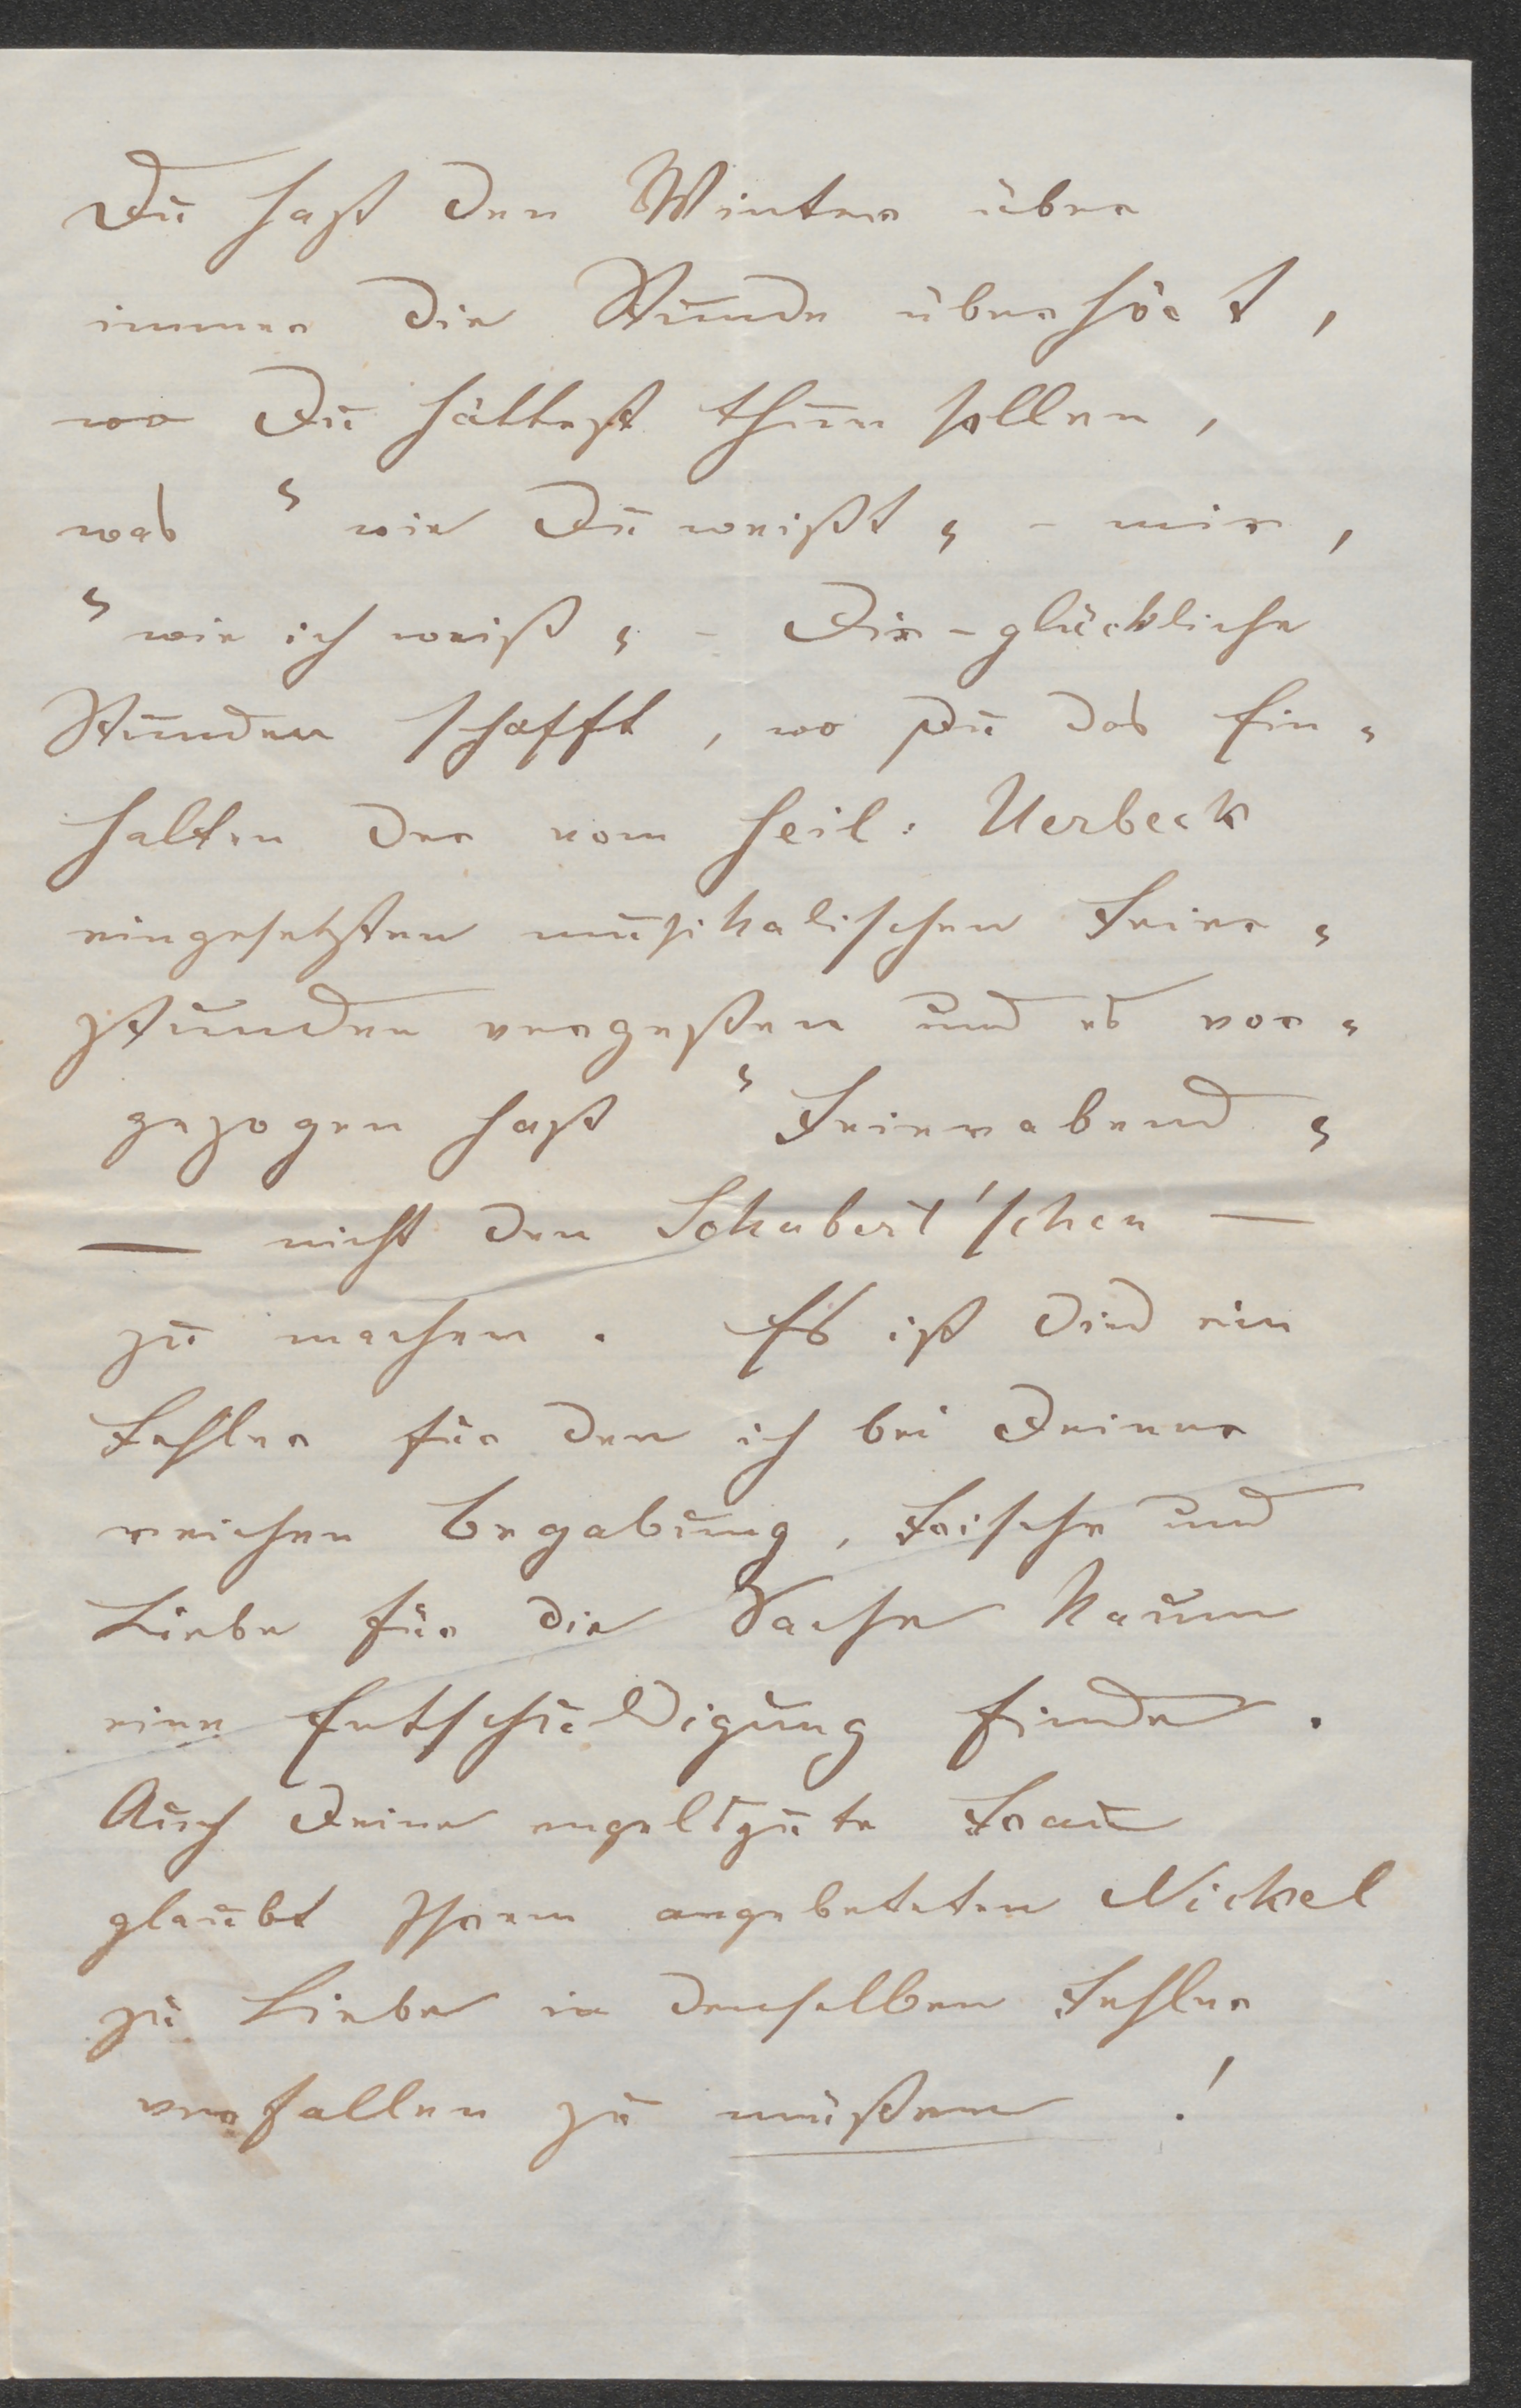 Du hast den Winter über
immer die Stunde überhört,
wo Du hättest thun sollen,
was " wie Du weißt " - mir,
" wie ich weiß " - Dir - glückliche
Stunden schafft, wo Du das Ein-
halten der vom heil: Uerbeck
eingesetzten musikalischen Feier-
stunden vergeßen und es vor-
gezogen hast " Feierabend "
— nicht den Schubert'schen —
zu machen. Es ist dies ein
Fehler für den ich bei Deiner
reichen Begabung, Frische und
Liebe für die Sache kaum
eine Entschuldigung finde.
Auch Deine engelsgute Frau
glaubt Ihrem angebeteten Nickel
zu Liebe in denselben Fehler
verfallen zu müßen!